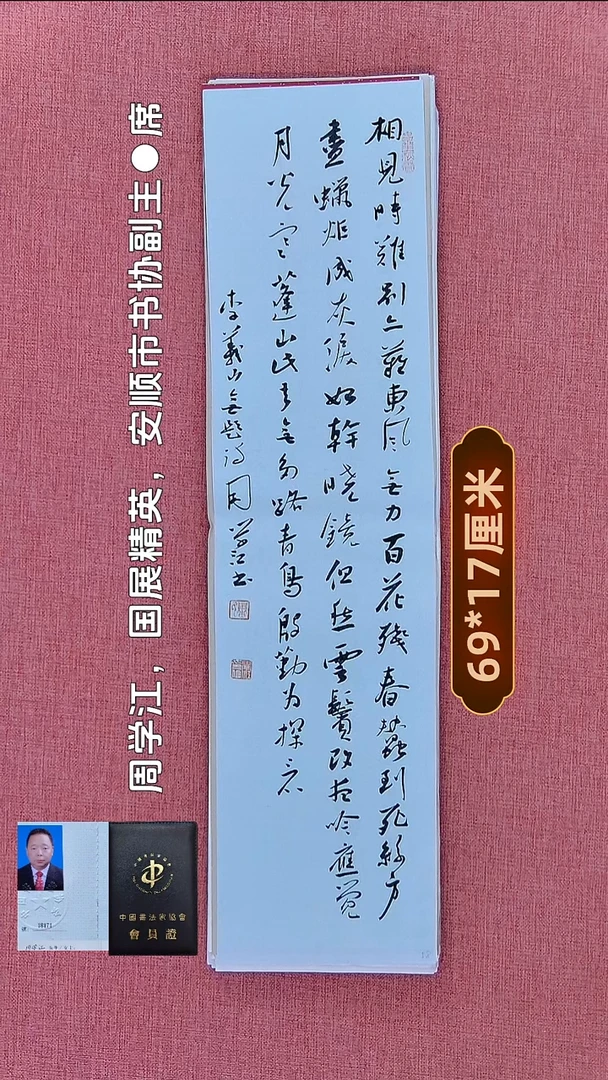 相見時難別亦難東風無力百花殘春蠶到死絲方
盡蠟炬成灰淚始幹曉鏡但愁雲鬢改夜吟應覺
月光寒蓬山此去無多路青鳥殷勤為探看
李義山無題詩周學江書
周学江，国展精英，安顺市书协副主●席
69*17厘米
中國書法家協會
會員證